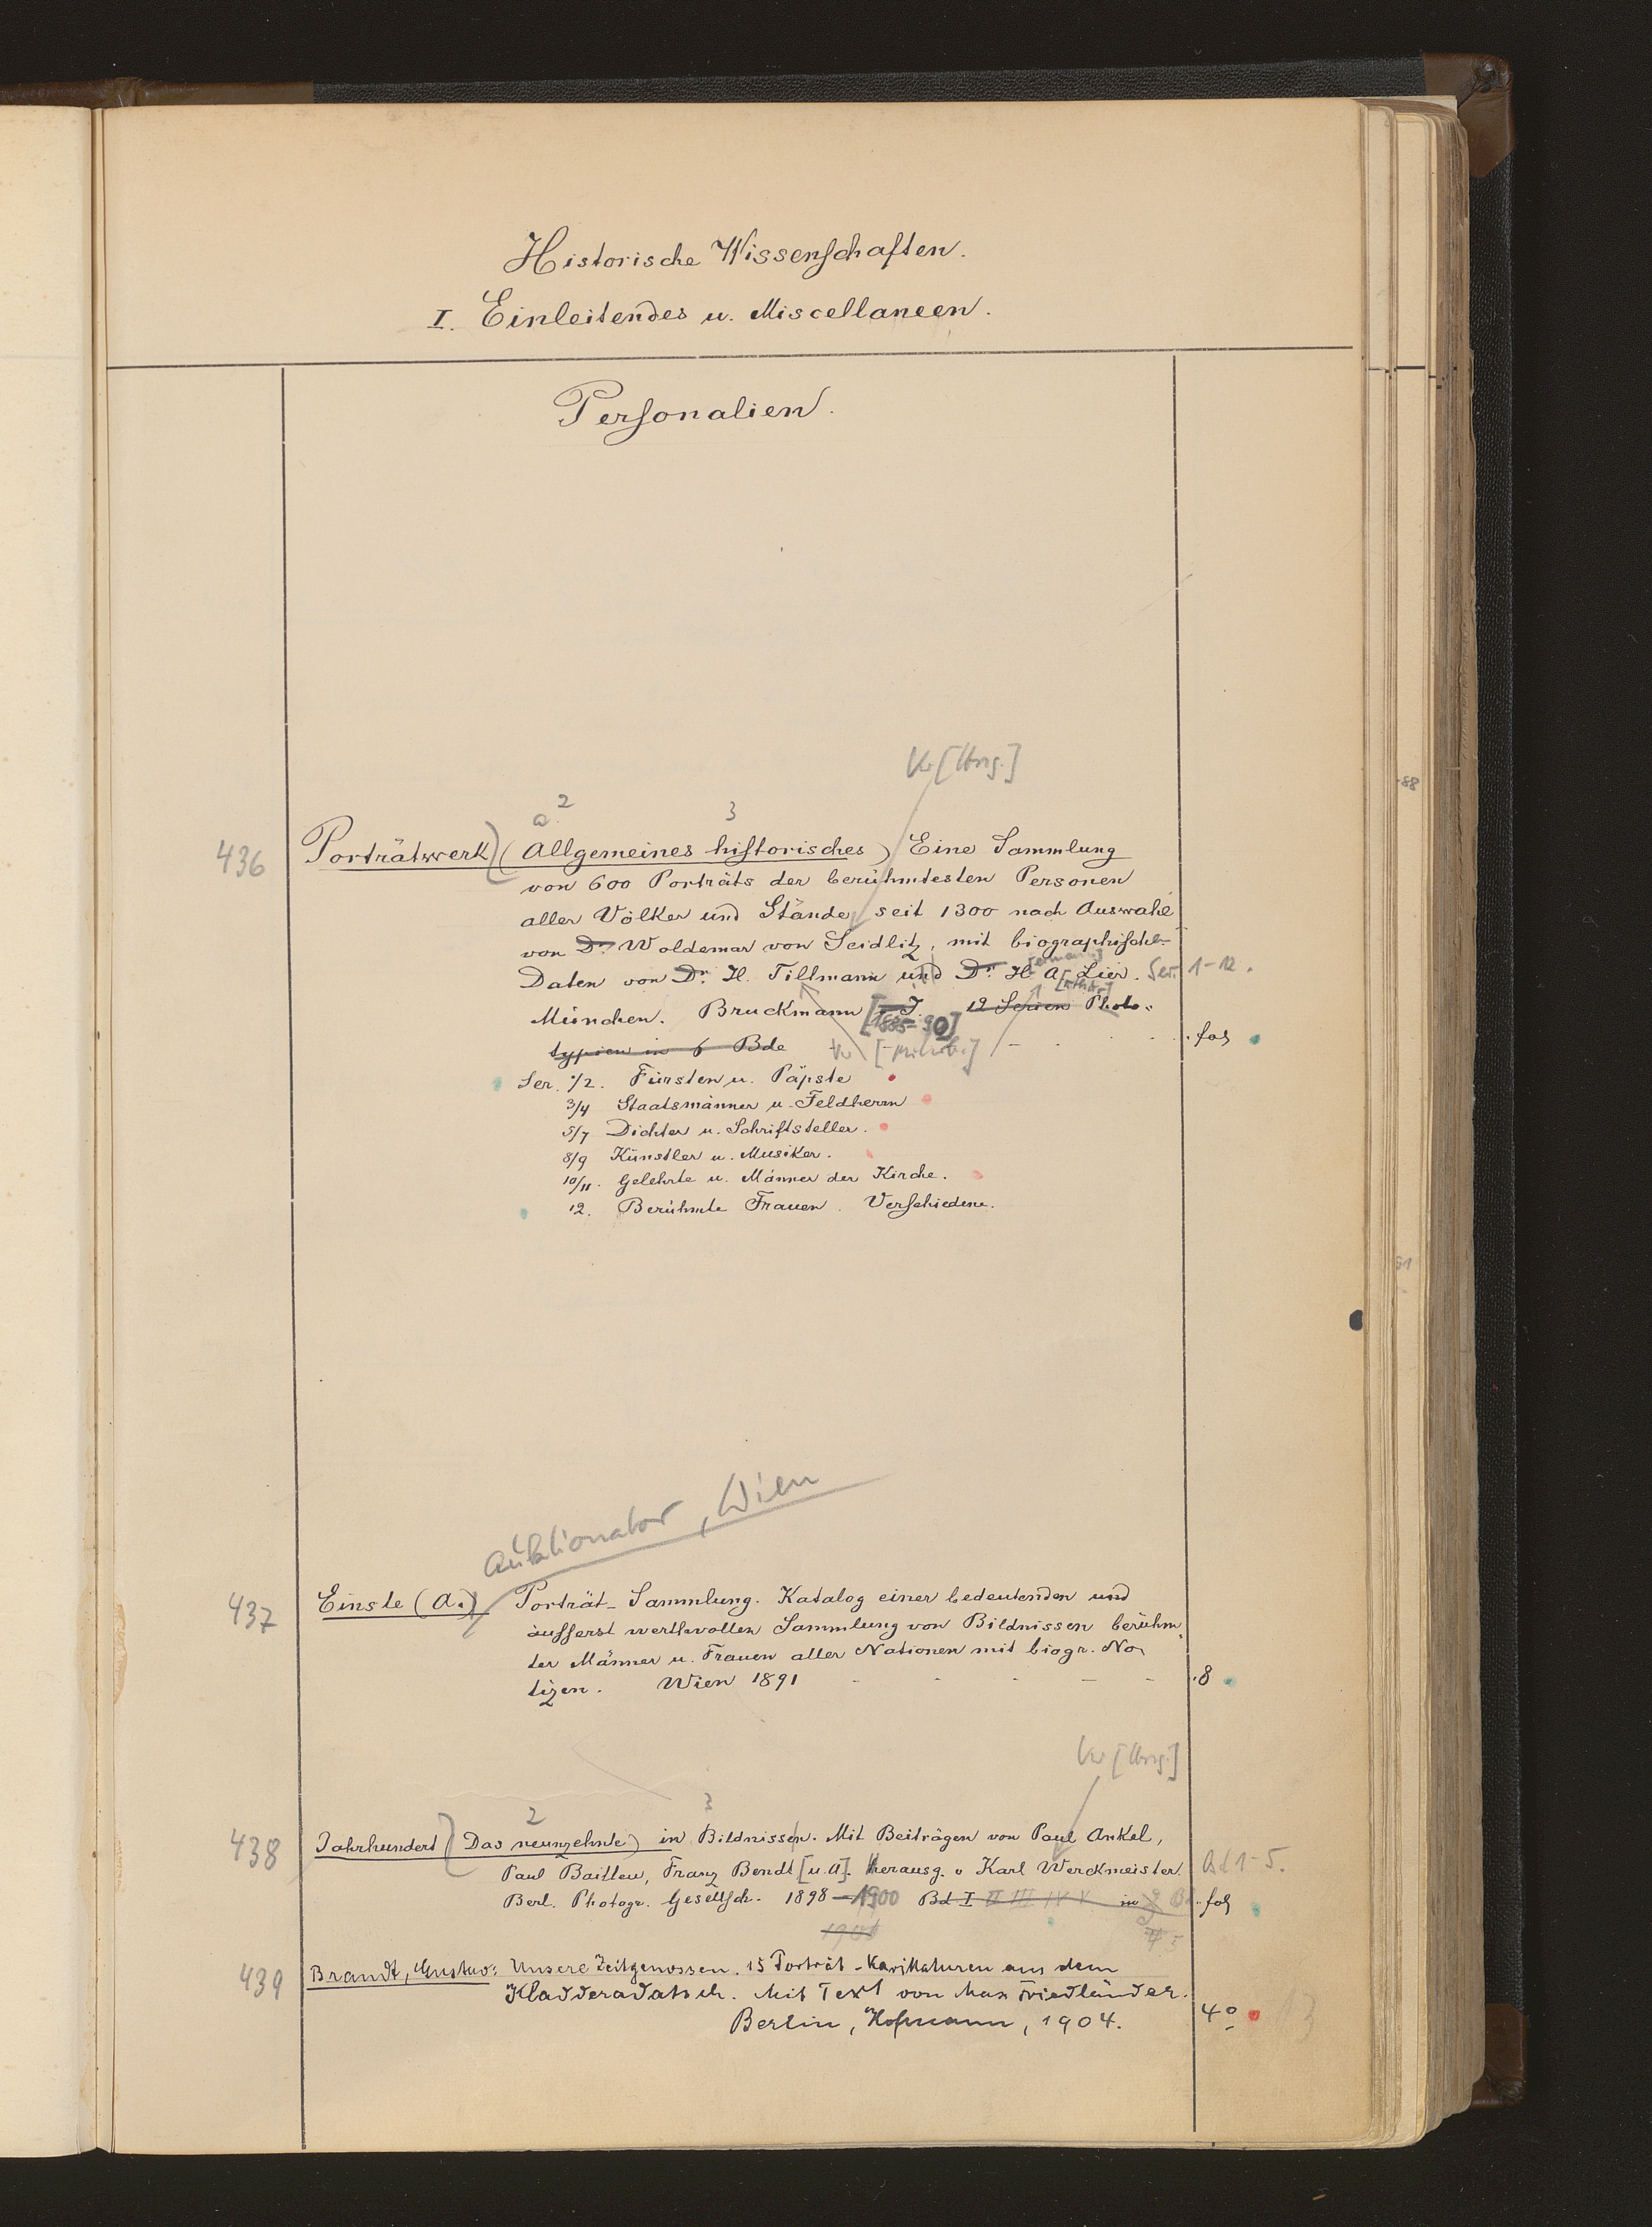 Historische Wissenschaften.
I. Einleitendes u. Miscellaneen.
Personalien.
Vw [Hrsg.]
a. 2 3
436 Porträtwerk (Allgemeines historisches) Eine Sammlung
von 600 Porträts der berühmtesten Personen
aller Völker und Stände, seit 1300 nach Auswahl
von Dr. Woldemar von Seidlitz, mit biographischen
Daten von Dr. H. Tillmann und Dr. H. A. Lier. Ser. 1-12.
München. Bruckmann [1885-90] 12 Serien Photo-
typien in 6 Bde fol
Ser. 1/2. Fürsten u. Päpste
3/4 Staatsmänner u. Feldherrn
5/7 Dichter u. Schriftsteller.
8/9 Künstler u. Musiker.
10/11. Gelehrte u. Männer der Kirche.
12. Berühmte Frauen. Verschiedene.
Auktionator, Wien
437 Einsle (A.) Porträt-Sammlung. Katalog einer bedeutenden und
äusserst werthvollen Sammlung von Bildnissen berühm-
ter Männer u. Frauen aller Nationen mit biogr. No-
tizen. Wien 1891 - - - - - 8
Vw [Hrsg.]
2 3
438 Jahrhundert (Das neunzehnte) in Bildnissen. Mit Beiträgen von Paul Ankel,
Paul Bailleu, Franz Bendt [u. A]. Herausg. v Karl Werckmeister. Bd 1-5.
Berl. Photogr. Gesellsch. 1898-1900 Bd I II III IV V in fol
1901
439 Brandt, Gustav: Unsere Zeitgenossen. 15 Porträt-Karikaturen aus dem
Kladderadatsch. Mit Text von Max Friedländer.
Berlin, Hofmann, 1904. 4o